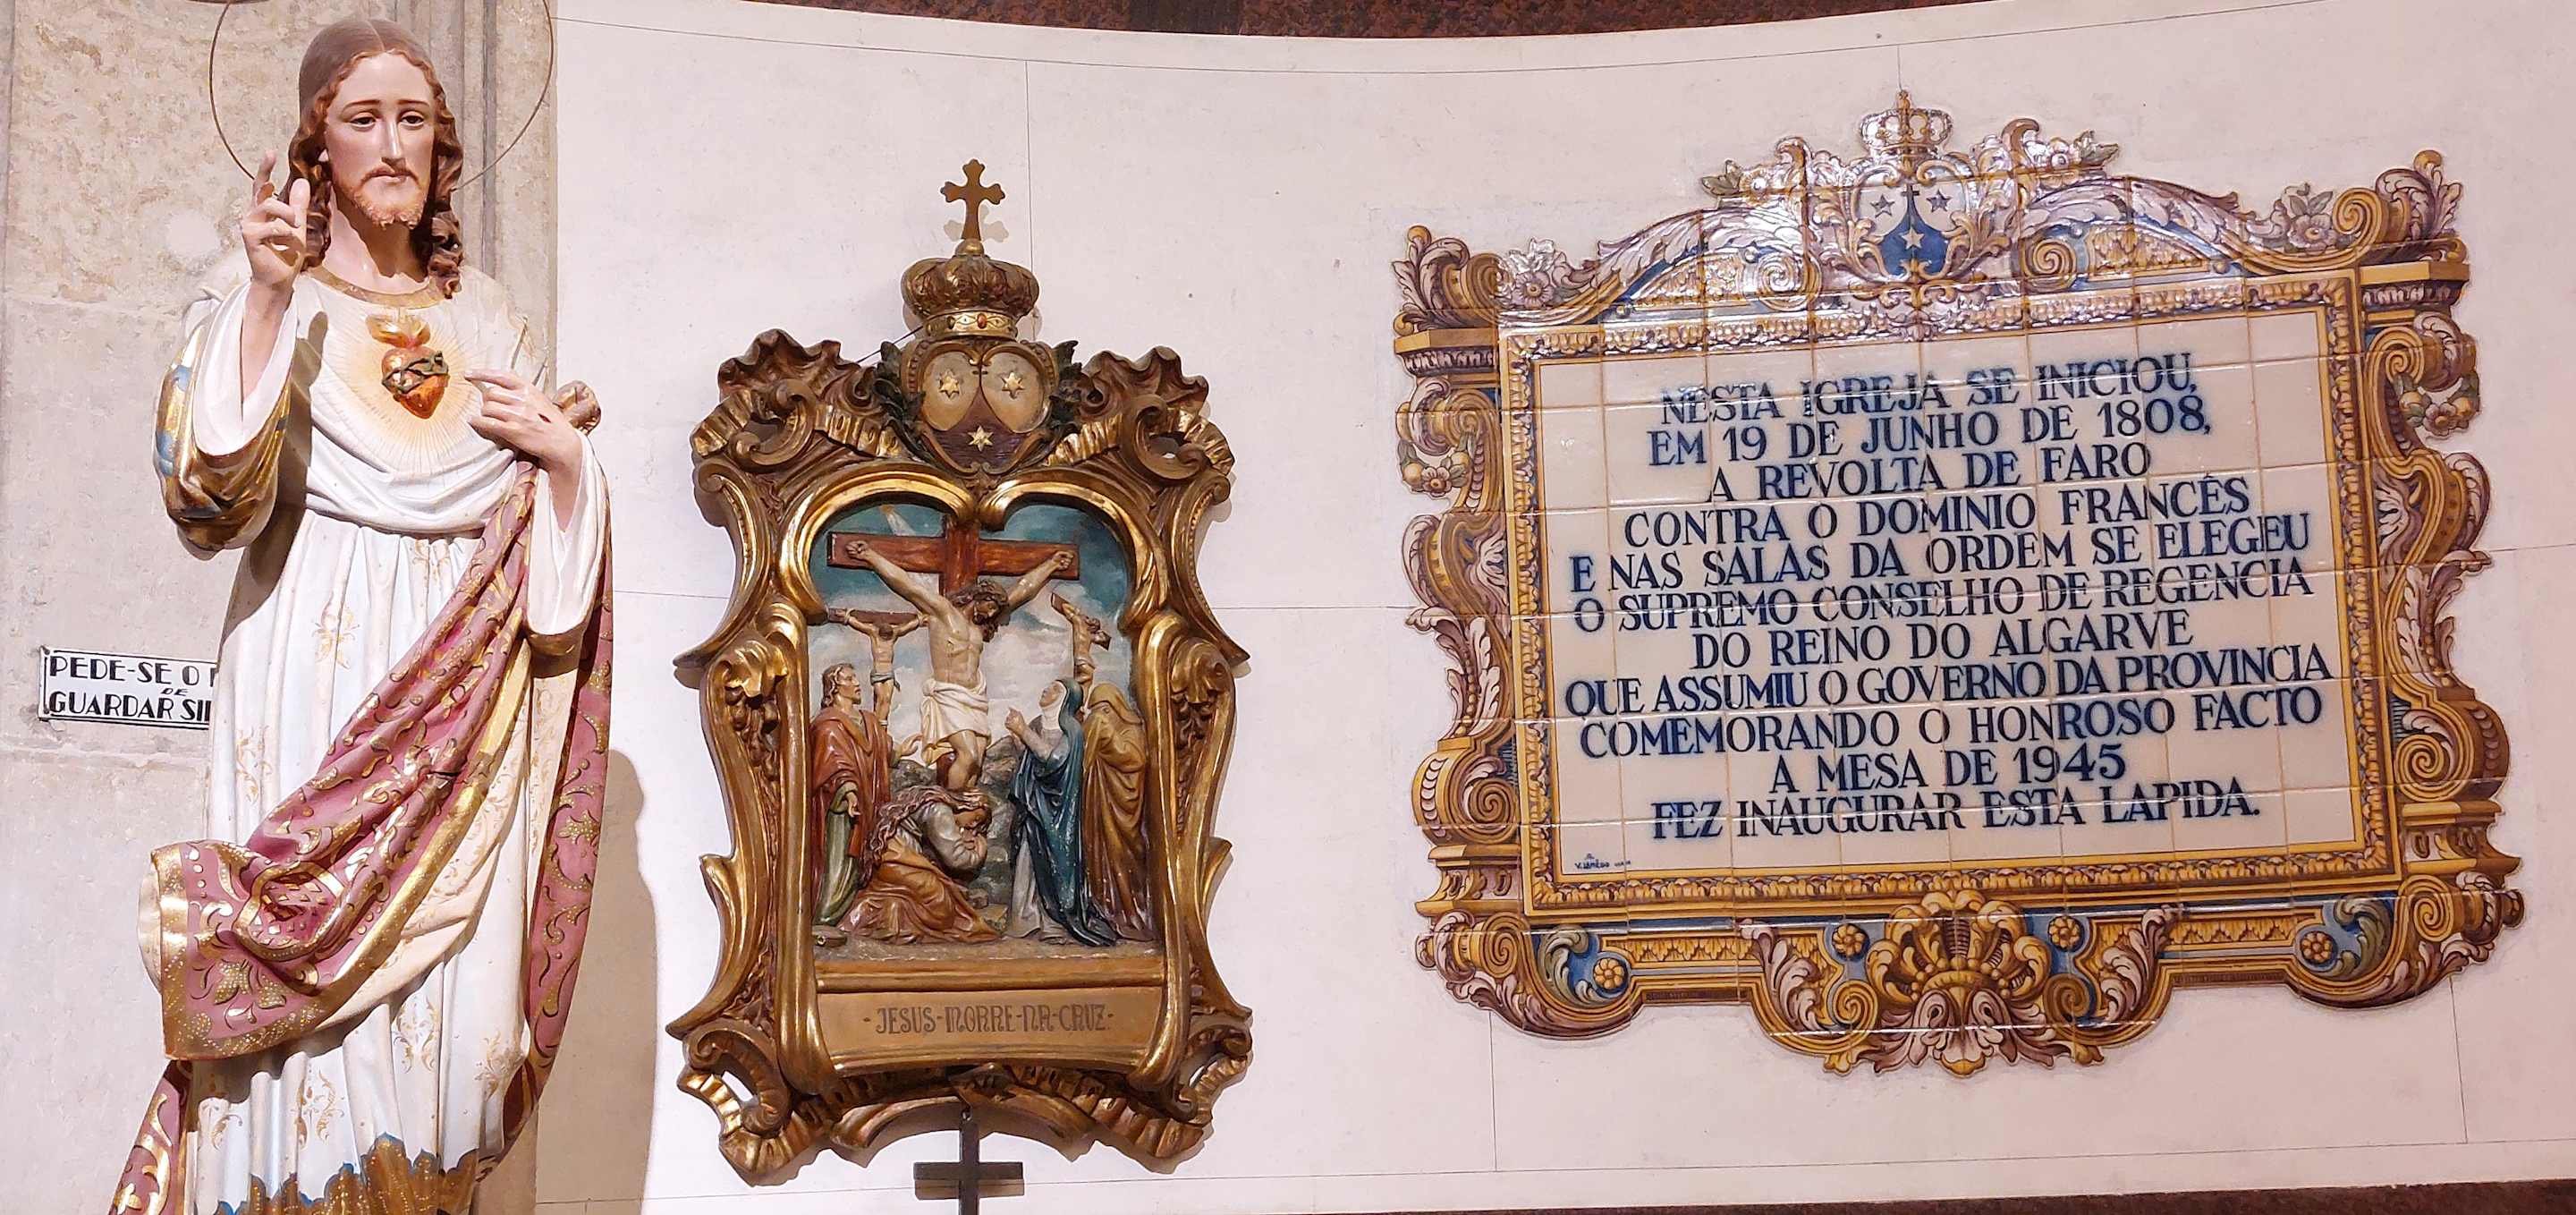 PEDE-SE O
DE
GUARDAR
JESUS-MORRE-NA-CRUZ
NESTA IGREJA SE INICIOU,
EM 19 DE JUNHO DE 1808,
A REVOLTA DE FARO
CONTRA O DOMINIO FRANCÊS
E NAS SALAS DA ORDEM SE ELEGEU
O SUPREMO CONSELHO DE REGENCIA
DO REINO DO ALGARVE
QUE ASSUMIU O GOVERNO DA PROVINCIA
COMEMORANDO O HONROSO FACTO
A MESA DE 1945
FEZ INAUGURAR ESTA LAPIDA.
V. LAMEGO